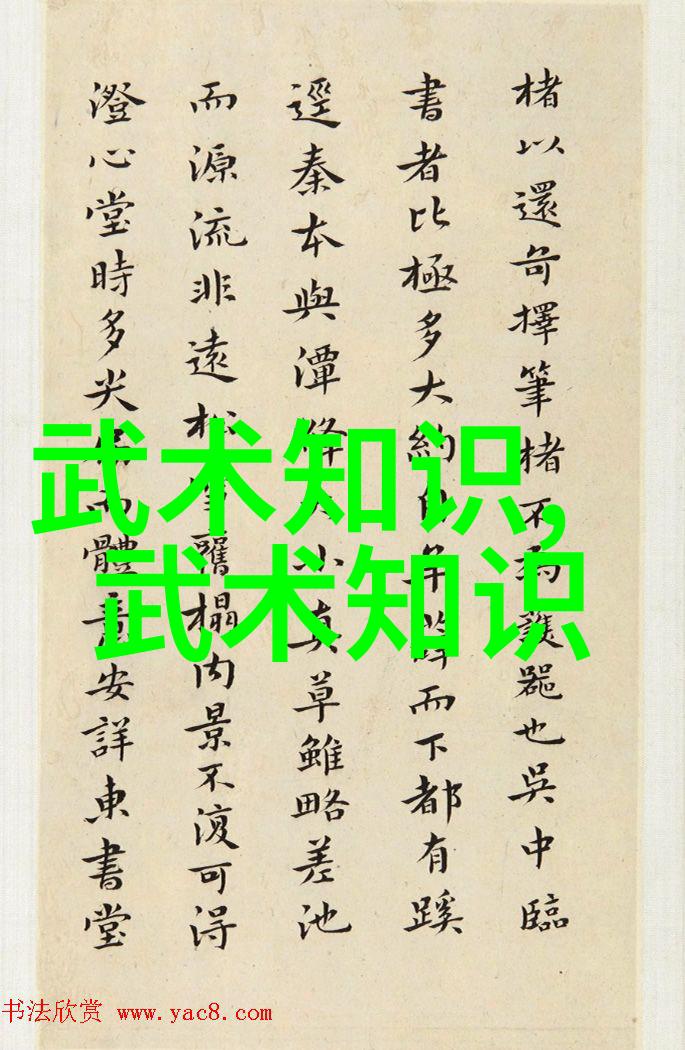 楮以還奇擇筆楮不器也吳中臨
書者比極多大約而下都有蹊
逕秦本與潭絳大小真草雖略差池
而源流非遠松雪舊榻内景不復可得
澄心堂時多尖而體意安詳東書堂
武术知识,
武术知识
书法欣赏 www.yac8.com